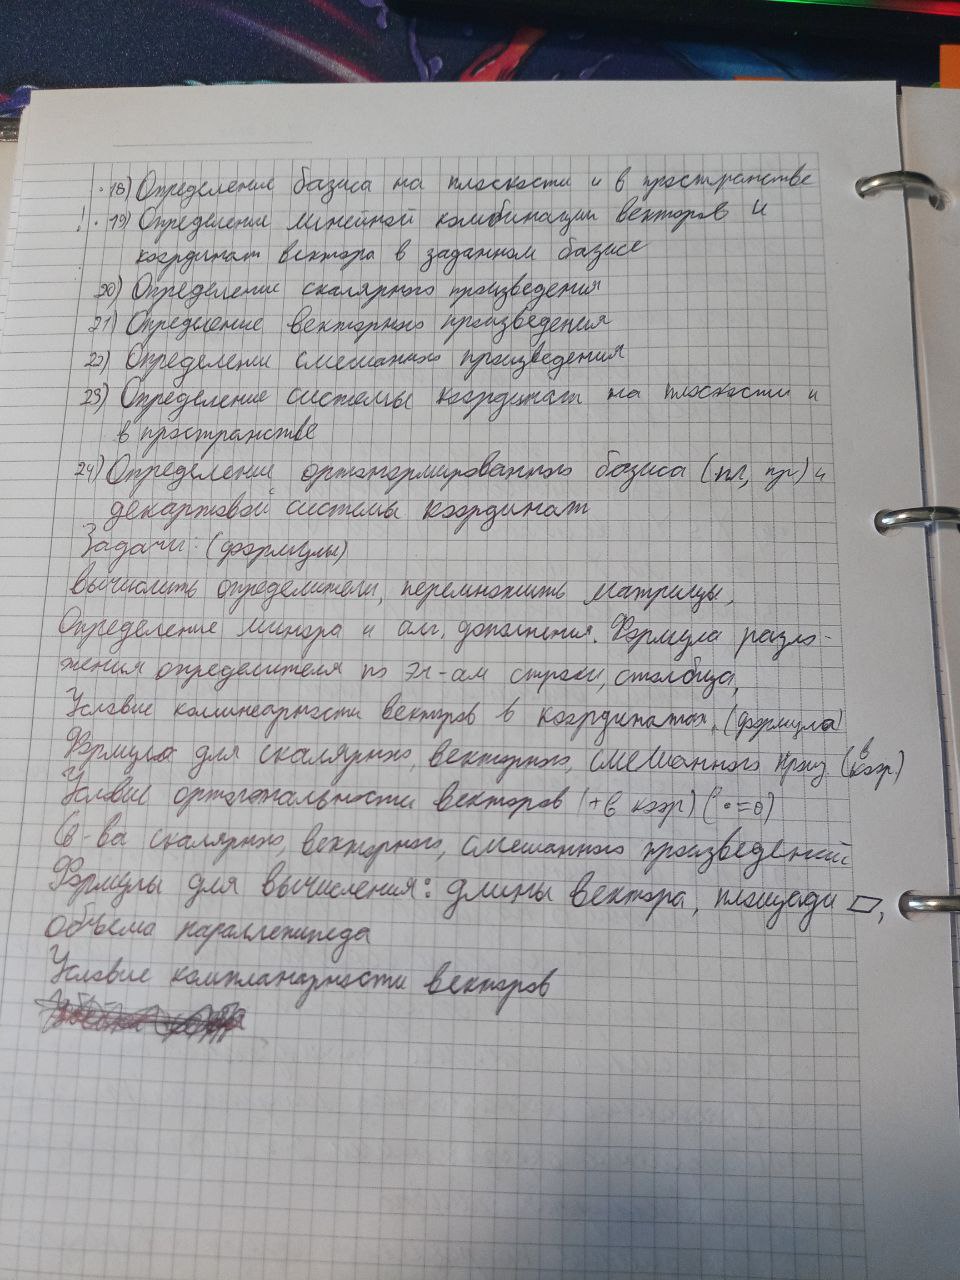 · 18) Определение базиса на плоскости и в пространстве
! · 19) Определение линейной комбинации векторов и
координат вектора в заданном базисе
20) Определение скалярного произведения
21) Определение векторного произведения
22) Определение смешанного произведения
23) Определение системы координат на плоскости и
в пространстве
24) Определение ортонормированного базиса (пл, пр) и
декартовой системы координат
Задачи: (формулы)
Вычислить определители, перемножить матрицы,
Определение минора и алг. дополнения. Формула разло-
жения определителя по эл-ам строки, столбца,
Условие коллинеарности векторов в координатах, (формула)
Формула для скалярного, векторного, смешанного произ. (в коор)
Условие ортогональности векторов (+в коор) (•=0)
Св-ва скалярного, векторного, смешанного произведений
Формулы для вычисления: длины вектора, площади ▱,
объёма параллепипеда
Условие компланарности векторов